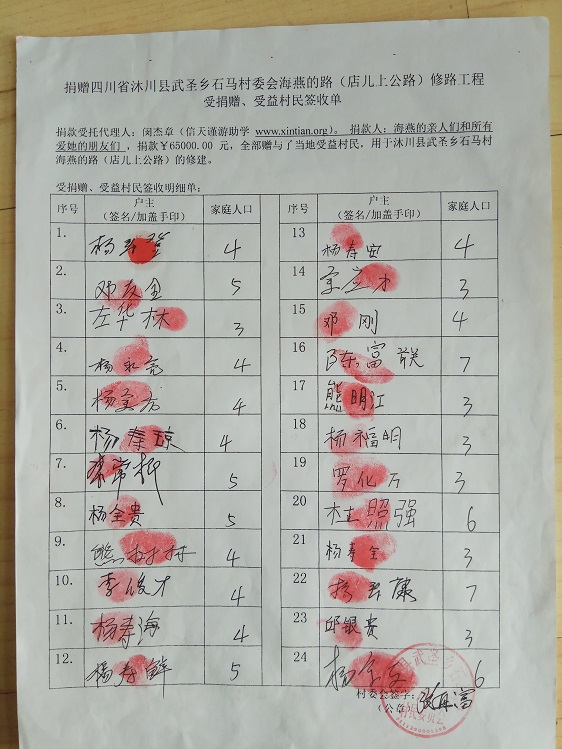 捐赠四川省沐川县武圣乡石马村委会海燕的路（店儿上公路）修路工程
受捐赠、受益村民签收单
捐款受托代理人：闵杰章（信天谨游助学 www.xintian.org）。 捐款人：海燕的亲人们和所有
爱她的朋友们 ，捐款￥65000.00 元，全部赠与了当地受益村民，用于沐川县武圣乡石马村
海燕的路（店儿上公路）的修建。
受捐赠、受益村民签收明细单：
序号 户主 家庭人口
（签名/加盖手印）
1. 4
2. 邓友全 5
3. 左华林 3
4. 杨永亮 4
5. 杨 4
6. 杨寿琼 4
7. 5
8. 杨全贵 5
9. 熊树林 4
10. 李俊才 4
11. 杨寿海 4
12. 杨寿鲜 5
序号 户主 家庭人口
（签名/加盖手印）
13 杨寿安 4
14 3
15 邓刚 4
16 陈富联 7
17 熊明江 3
18 杨福明 3
19 罗化万 3
20 杜照强 6
21 杨寿全 3
22 杨 康 7
23 邱银贵 3
24 杨 6
村委会签字：
（公章）